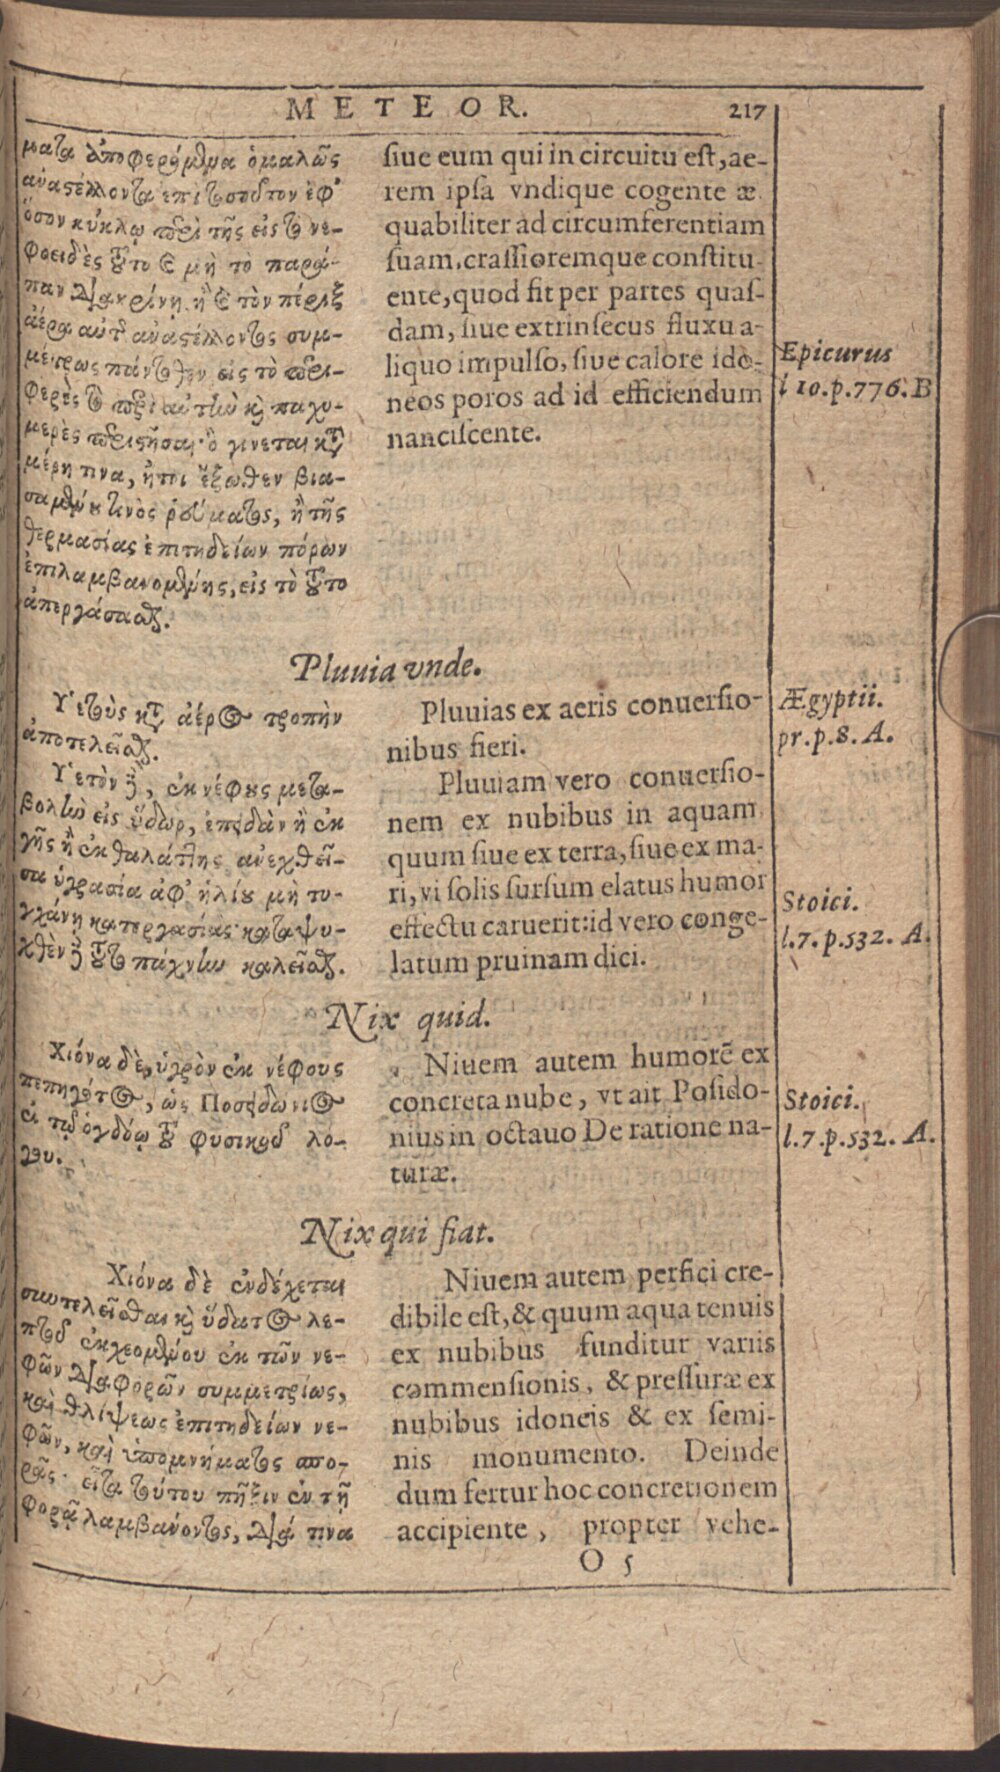 METEOR. 217
ματα ἀποφερόμενα ὁμαλῶς
ἀναστέλλοντα ἐπὶ τοσοῦτον ἐφ᾽
ὅσον κύκλῳ περιστῆσαι εἰς τὸ νε-
φοειδὲς τοῦτο καὶ μὴ τὸ παρά-
παν διακρίνῃ ἢ καὶ τὸν πέριξ
ἀέρα αὐτοῦ ἀναστέλλοντος συμ-
μέτρως πάντοθεν εἰς τὸ περι-
φερὲς τὸ περὶ αὐτὴν καὶ παχυ-
μερὲς περιστῆσαι· ὃ γίνεται κατὰ
μέρη τινα, ἤτοι ἔξωθεν βια-
σαμένου τινὸς ῥεύματος, ἢ τῆς
θερμασίας ἐπιτηδείων πόρων
ἐπιλαμβανομένης, εἰς τὸ τοῦτο
ἀπεργάσασθαι.
siue eum qui in circuitu est, ae-
rem ipsa vndique cogente æ
quabiliter ad circumferentiam
suam, crassioremque constitu-
ente, quod fit per partes quas-
dam, siue extrinsecus fluxu a-
liquo impulso, siue calore ido-
neos poros ad id efficiendum
nanciscente.
Epicurus
l 10. p. 776. B
Pluuia vnde.
Ὑετὸὺς κατὰ ἀέρος τροπὴν
ἀποτελεῖσθαι.
Ὑετὸν δὲ, ἐκ νέφους μετα-
βολὴν εἰς ὕδωρ, ἐπειδὰν ἢ ἐκ
γῆς ἢ ἐκ θαλάττης ἀνεχθεῖ-
σα ὑγρασία ἀφ᾽ ἡλίου μὴ τυ-
γχάνῃ κατεργασίας· καταψυ-
χθὲν δὲ τοῦτο πάχνην καλεῖσθαι.
Pluuias ex aeris conuersio-
nibus fieri.
Pluuiam vero conuersio-
nem ex nubibus in aquam
quum siue ex terra, siue ex ma-
ri, vi solis sursum elatus humor
effectu caruerit: id vero conge-
latum pruinam dici.
Ægyptii.
pr. p. 8. A.
Stoici.
l. 7. p. 532. A.
Nix quid.
Χιόνα δὲ, ὑγρὸν ἐκ νέφους
πεπηγότος, ὡς Ποσειδώνιος
ἐν τῷ ὀγδόῳ τοῦ φυσικοῦ λό-
γου.
Niuem autem humorẽ ex
concreta nube, vt ait Posido-
nius in octauo De ratione na-
turæ.
Stoici.
l. 7. p. 532. A.
Nix qui fiat.
Χιόνα δὲ ἐνδέχεται
συντελεῖσθαι καὶ ὕδατος λε-
πτοῦ ἐκχεομένου ἐκ τῶν νε-
φῶν διαφορῶν συμμετρίως,
καὶ θλίψεως ἐπιτηδείων νε-
φῶν, καὶ ὑπομνήματος σπο-
ρᾶς· εἶτα τούτου πῆξιν ἐν τῇ
φορᾷ λαμβάνοντος, διά τινα
Niuem autem perfici cre-
dibile est, & quum aqua tenuis
ex nubibus funditur variis
commensionis, & pressuræ ex
nubibus idoneis & ex semi-
nis monumento. Deinde
dum fertur hoc concretionem
accipiente, propter vehe-
O 5